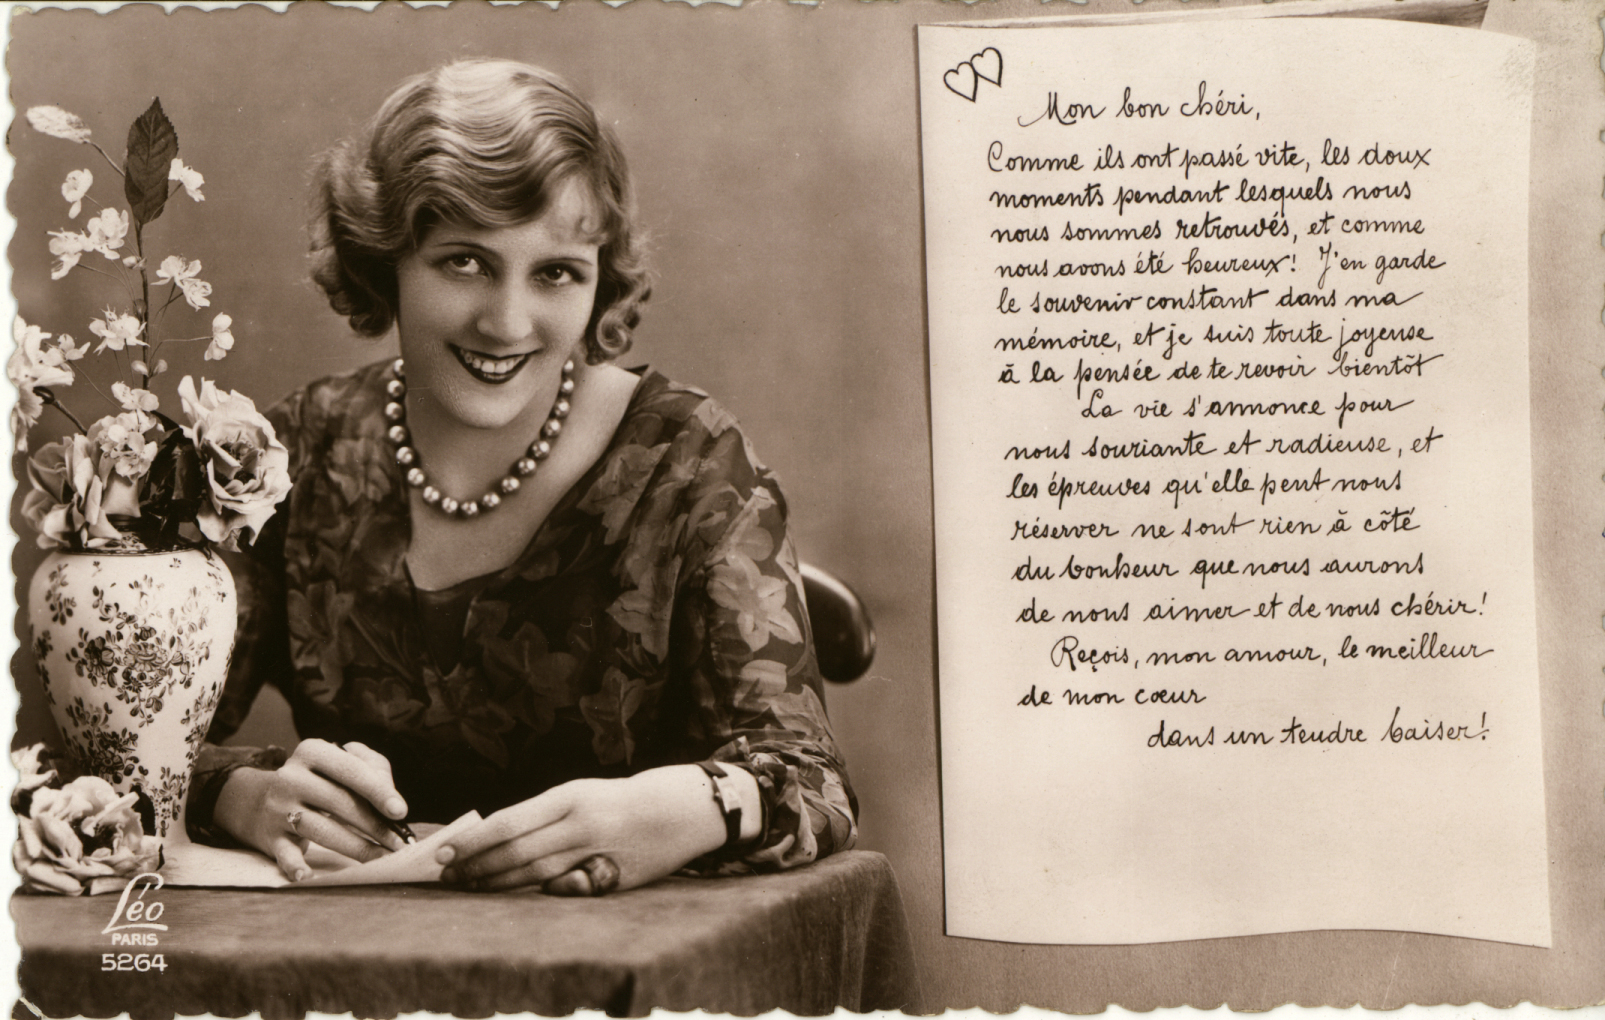 Mon bon chéri,
Comme ils ont passé vite, les doux
moments pendant lesquels nous
nous sommes retrouvés, et comme
nous avons été heureux! J'en garde
le souvenir constant dans ma
mémoire, et je suis toute joyeuse
à la pensée de te revoir bientôt
La vie s'annonce pour
nous souriante et radieuse, et
les épreuves qu'elle peut nous
réserver ne sont rien à côté
du bonheur que nous aurons
de nous aimer et de nous chérir!
Reçois, mon amour, le meilleur
de mon cœur
dans un tendre baiser!
Léo
PARIS
5264